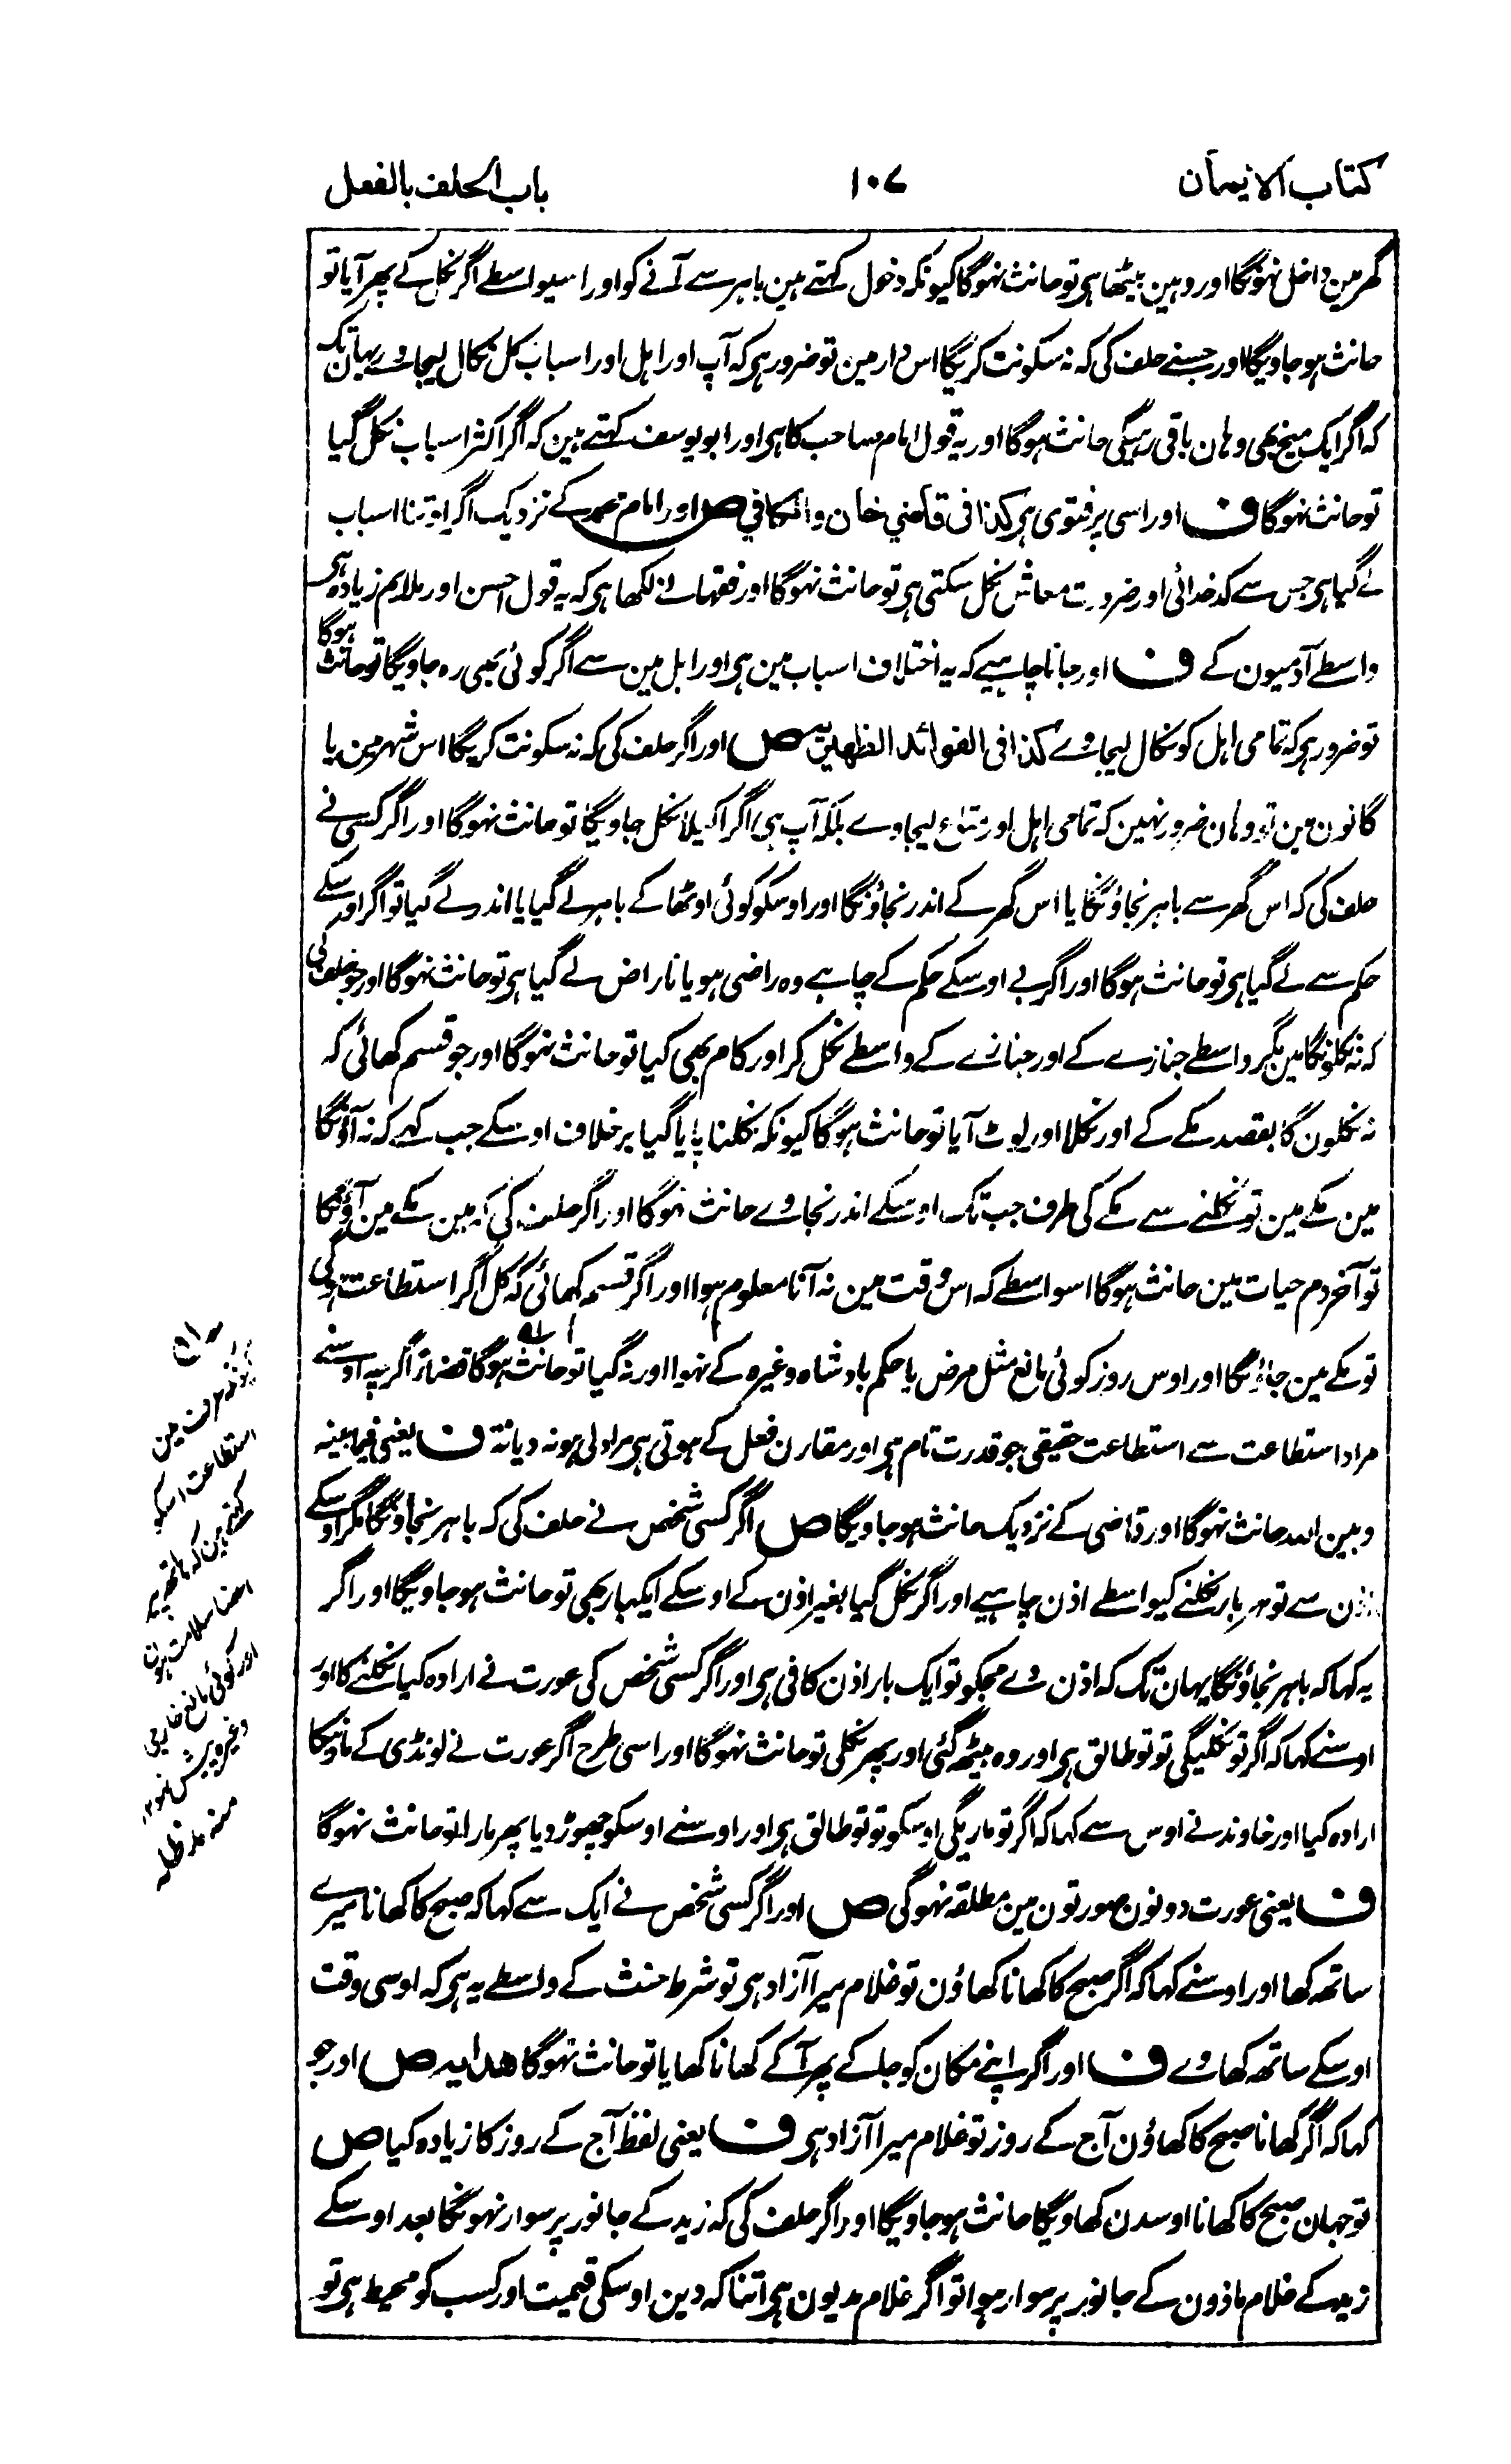 کتاب الایمان
۱۰۷
باب الحلف بالفعل
گھر مین داخل نہونگا اور وہین بیٹھا ہی تو حانث نہوگا کیونکہ دخول کہتے ہین باہر سے آنے کو اور اسیواسطے اگر نکل کے پھر آیا تو
حانث ہو جاویگا اور جسنے حلف کی کہ نہ سکونت کریگا اس دار مین تو ضرور ہی کہ آپ اور اہل اور اسباب کل نکال لیجاوے یہانتک
کہ اگر ایک میخ بھی وہان باقی رہیگی حانث ہوگا اور یہ قول امام صاحب کا ہی اور ابو یوسف کہتے ہین کہ اگر اکثر اسباب نکل گیا
تو حانث نہوگا ف اور اسی پر فتوی ہی کذا فی قاضی خان والکافی ص اور امام محمد کے نزدیک اگر اوتنا اسباب
لے گیا ہی جس سے کد خدائی اور ضرورت معاش نکل سکتی ہی تو حانث نہوگا اور فقہا نے لکھا ہی کہ یہ قول احسن اور ملایم زیادہ ہی
واسطے آدمیون کے ف اور جاننا چاہیے کہ یہ اختلاف اسباب مین ہی اور اہل مین سے اگر کوئی بھی رہ جاویگا تو حانث ہوگا
تو ضرور ہی کہ تمامی اہل کو نکال لیجاوے کذا فی الفوائد الظهیریہ ص اور اگر حلف کی کہ نہ سکونت کریگا اس شہر مین یا
گانون مین تو وہان ضرور نہین کہ تمامی اہل اور متاع لیجاوے بلکہ آپ ہی اگر اکیلا نکل جاویگا تو حانث نہوگا اور اگر کسی نے
حلف کی کہ اس گھر سے باہر نجاؤنگا یا اس گھر کے اندر نجاؤنگا اور اوسکو کوئی اوٹھا کے باہر لے گیا یا اندر لے گیا تو اگر اوسکے
حکم سے لے گیا ہی تو حانث ہوگا اور اگر بے اوسکے حکم کے چاہے وہ راضی ہو یا ناراض لے گیا ہی تو حانث نہوگا اور جو حلف کی
کہ نہ نکلونگا مین مگر واسطے جنازے کے اور جنازے کے واسطے نکل کر اور کام بھی کیا تو حانث نہوگا اور جو قسم کھائی کہ
نہ نکلون گا بقصد مکے کے اور نکلا اور لوٹ آیا تو حانث ہوگا کیونکہ نکلنا پایا گیا بر خلاف اوسکے جب کہے کہ نہ آؤنگا
مین مکے مین تو نکلنے سے مکے کی طرف جب تک اوسکے اندر نجاوے حانث نہوگا اور اگر حلف کی کہ مین مکے مین آؤنگا
تو آخر دم حیات مین حانث ہوگا اسواسطے کہ اس وقت مین نہ آنا معلوم ہوا اور اگر قسم کھائی کہ کل اگر استطاعت ہوگی
تو مکے مین جاؤنگا اور اوس روز کوئی مانع مثل مرض یا حکم بادشاہ وغیرہ کے نہوا اور نہ گیا تو حانث ہوگا قضاءً اگرچہ اوسنے
مراد استطاعت سے استطاعت حقیقی جو قدرت تام ہی اور مقارن فعل کے ہوتی ہی مراد لی ہو نہ دیانۃً ف یعنی فیما بینہ
وبین اللہ حانث نہوگا اور قاضی کے نزدیک حانث ہو جاویگا ص اگر کسی شخص نے حلف کی کہ باہر نجاؤنگا مگر اوسکے
اذن سے تو ہر بار نکلنے کیواسطے اذن چاہیے اور اگر نکل گیا بغیر اذن کے اوسکے ایکبار بھی تو حانث ہو جاویگا اور اگر
یہ کہا کہ باہر نجاؤنگا یہان تک کہ اذن دے مجکو تو ایک بار اذن کافی ہی اور اگر کسی شخص کی عورت نے ارادہ کیا نکلنے کا اور
اوسنے کہا کہ اگر تو نکلیگی تو تو طالق ہی اور وہ بیٹھ گئی اور پھر نکلی تو حانث نہوگا اور اسی طرح اگر عورت نے لونڈی کے مارنیکا
ارادہ کیا اور خاوند نے اوس سے کہا کہ اگر تو ماریگی اوسکو تو تو طالق ہی اور اوسنے اوسکو چھوڑ دیا پھر مارا تو حانث نہوگا
ف یعنی عورت دونون صورتون مین مطلقہ نہوگی ص اور اگر کسی شخص نے ایک سے کہا کہ صبح کا کھانا میرے
ساتھ کھا اور اوسنے کہا کہ اگر صبح کا کھانا کھاؤن تو غلام میرا آزاد ہی تو شرط حنث کے واسطے یہ ہی کہ اوسی وقت
اوسکے ساتھ کھاوے ف اور اگر اپنے مکان کو جا کے پھر آ کے کھانا کھایا تو حانث نہوگا ہدایہ ص اور جو
کہا کہ اگر کھانا صبح کا کھاؤن آج کے روز تو غلام میرا آزاد ہی ف یعنی لفظ آج کے روز کا زیادہ کیا ص
تو جہان صبح کا کھانا اوسدن کھاویگا حانث ہو جاویگا اور اگر حلف کی کہ زید کے جانور پر سوار نہونگا بعد اوسکے
زید کے غلام ماذون کے جانور پر سوار ہوا تو اگر غلام مدیون ہی اتنا کہ دین اوسکی قیمت اور کسب کو محیط ہی تو
عرف مین
استطاعت اسکو
کہتے ہین کہ ہاتھ پیر
اعضا سلامت ہون
اور کوئی مانع خارجی
وغیرہ پیش نہو ۱۲
منہ مد ظلہ